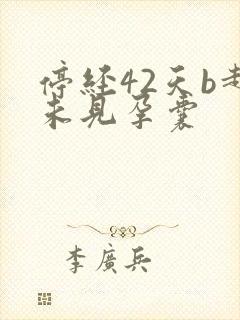 停经42天b
未见孕囊
李廣兵